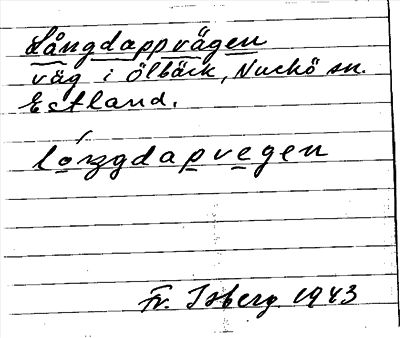 Långdappvägen
väg i Ölbäck, Nuckö sn.
Estland.
lóngdapvegen
Fr. Isberg 1943